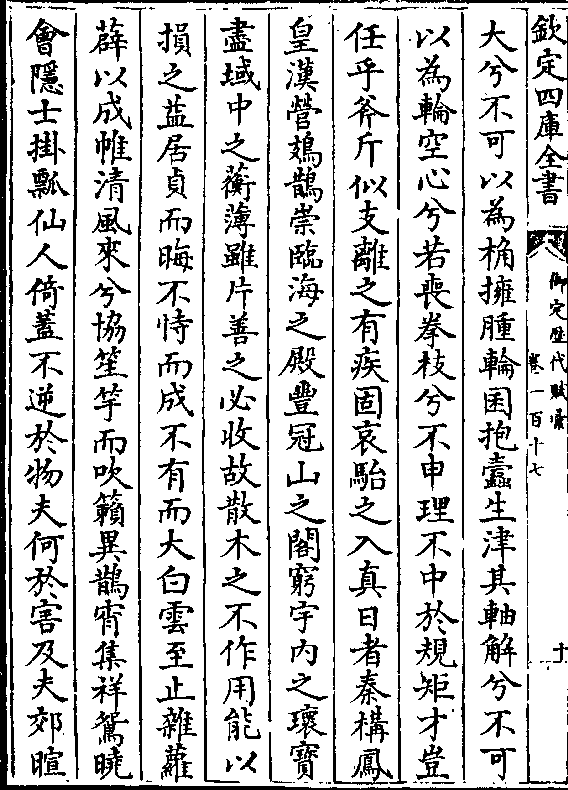 欽定四庫全書
御定歴代賦彙 卷一百十七
十
大兮不可以為桷擁腫輪囷抱蠹生津其軸解兮不可
以為輪空心兮若喪拳枝兮不申理不中於規矩才豈
任乎斧斤似支離之有疾固哀駘之入真日者秦構鳳
皇漢營鳷鵲崇臨海之殿豐冠山之閣窮宇内之瓌寶
盡域中之蘅薄雖片善之必收故散木之不作用能以
損之益居貞而晦不恃而成不有而大白雲至止雜蘿
薜以成帷清風來兮協笙竽而吹籟異鵲宵集祥鴛曉
會隱士掛瓢仙人倚蓋不逆於物夫何於害及夫郊暄